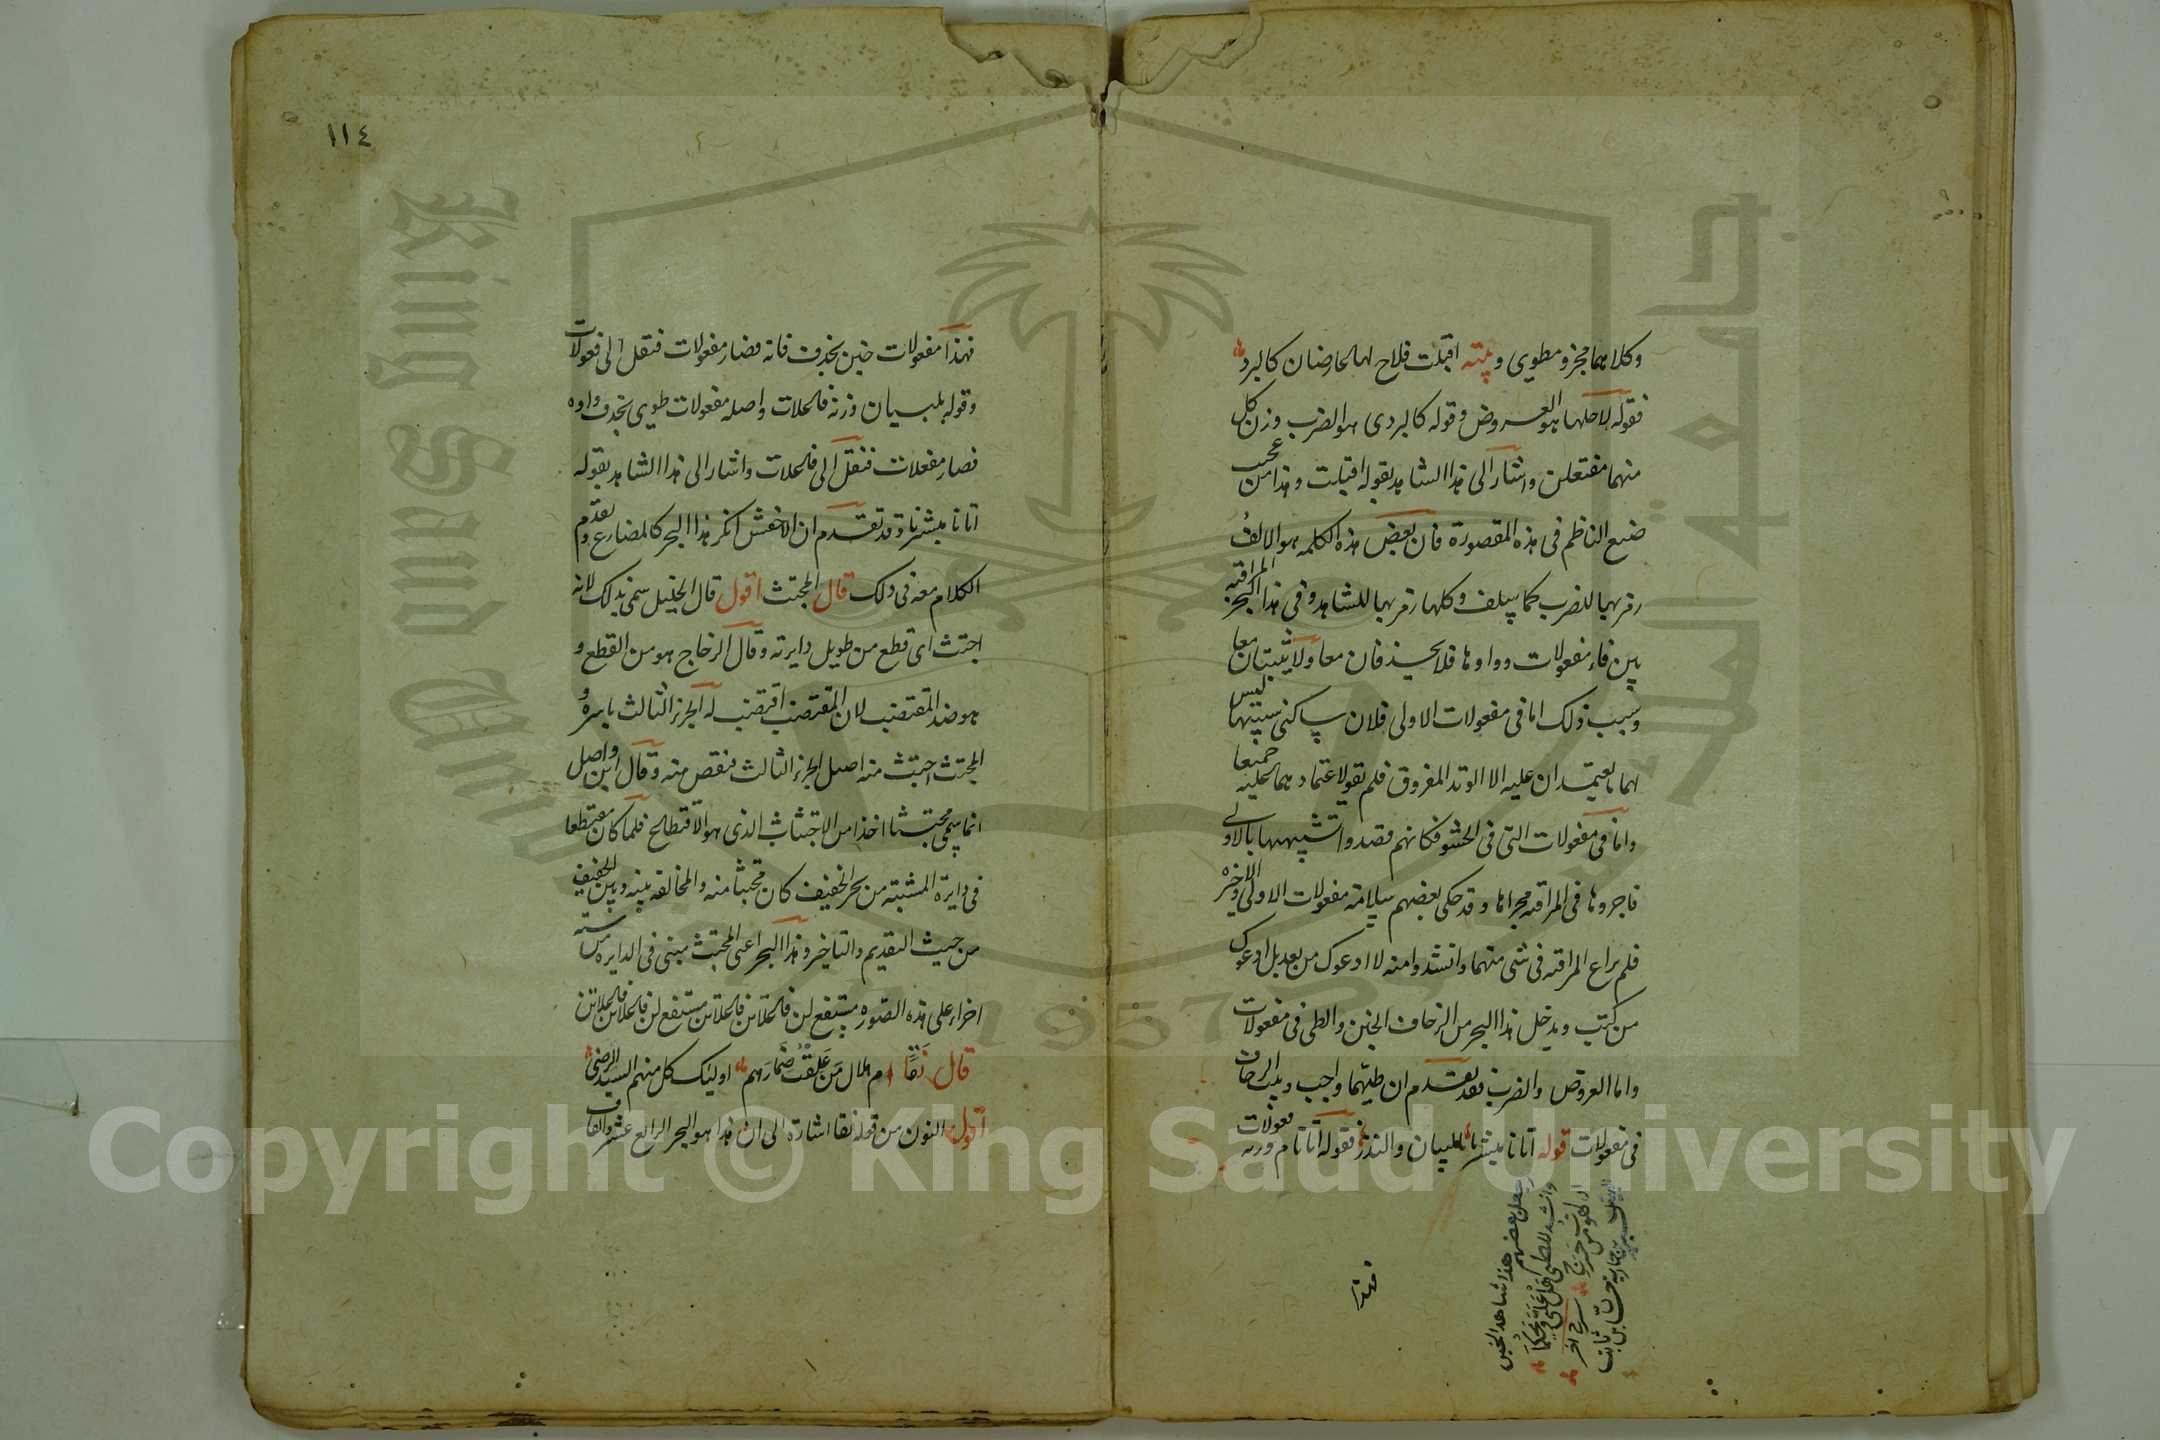 وكلاهما مجزو مطوي وبيته اقبلت فلاح لها عارضان كالبرد
فقوله لاحلها هو العروض وقوله كالبردي هو الضرب وزن كل
منهما مفتعلن واشار الى هذا الشاهد بقوله اقبلت وهذا من عجيب
صنع الناظم فى هذه المقصورة فان بعض هذه الكلمه هو الالف
رمز بها للضرب كما سلف وكلها رمز بها للشاهد وفى هذا البحر المراقبه
بين فاء مفعولات وواوها فلا يحذفان معا ولا يثبتان معا
وسبب ذلك اما فى مفعولات الاولى فلان ساكنى سببيها ليس
لهما ما يعتمدان عليه الا الوتد المفروق فلم يقو لاعتمادهما عليه جميعا
واما فى مفعولات التى فى الحشو فكانهم قصدوا تشبيهها بالاولى
فاجروها فى المراقبه مجراها وقد حكى بعضهم سلامة مفعولات الاولى والاخره
فلم يراع المراقبه فى شى منهما وانشدوا منه لا ادعوك من بعد بل ادعوك
من كثب ويدخل هذا البحر من الزحاف الخبن والطى فى مفعولات
واما العروض والضرب فقد تقدم ان طيهما واجب وبيت الزحاف
فى مفعولات قوله اتانا مبشرنا بالبيان والنذر فقوله اتانا م وزنه مفعولات
جعل بعضهم هذا شاهد الخبن
فهذا
١١٤
فهذا مفعولات خبن بحذف فائه فصار مفعولات فنقل الى فعولات
وقوله بلبيان وزنه فاعلات واصله مفعولات طوي بحذف واوه
فصار مفعلات فنقل الى فاعلات واشار الى هذا الشاهد بقوله
اتانا مبشرنا وقد تقدم ان الاخفش انكر هذا البحر كالمضارع وتقدم
الكلام معه فى ذلك قال المجتث اقول قال الخليل سمى بذلك لانه
اجتث اى قطع من طويل دايرته وقال الزجاج هو من القطع و
هو ضد المقتضب لان المقتضب اقتضب له الجزء الثالث باسره و
المجتث اجتث منه اصل الجزء الثالث فنقص منه وقال ابن واصل
انما سمى مجتثا اخذا من الاجتثاث الذى هو الاقتطاع فلما كان مقتطعا
فى دايرة المشتبه من بحر الخفيف كان مجتثا منه والمخالفه بينه وبين الخفيف
من حيث التقديم والتاخير وهذا البحر اعنى المجتث مبنى فى الدايره من سته
اجزاء على هذه الصوره مستفع لن فاعلاتن فاعلاتن مستفع لن فاعلاتن فاعلاتن
قال نقا ام هلال من علقت ضمارهم اوليك كل منهم السيد الرضى
اقول النون من قوله نقا اشارة الى ان هذا هو البحر الرابع عشر والقاف
King Saud University
1957
Copyright © King Saud University